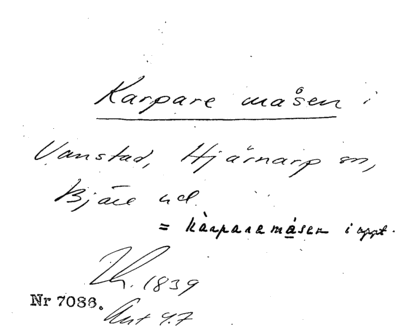 Karpare måsen i
Vanstad, Hjärnarp sn,
Bjäre hd
= kàrparemåsen i uppt.
1839
Nr 7036.
Ant 4.7